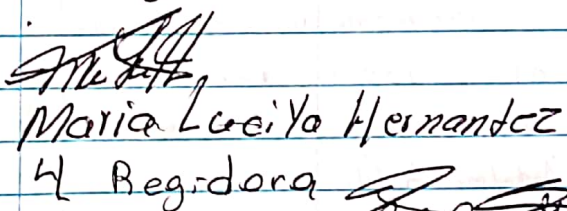 Maria Lucila Hernandez
4 Regidora